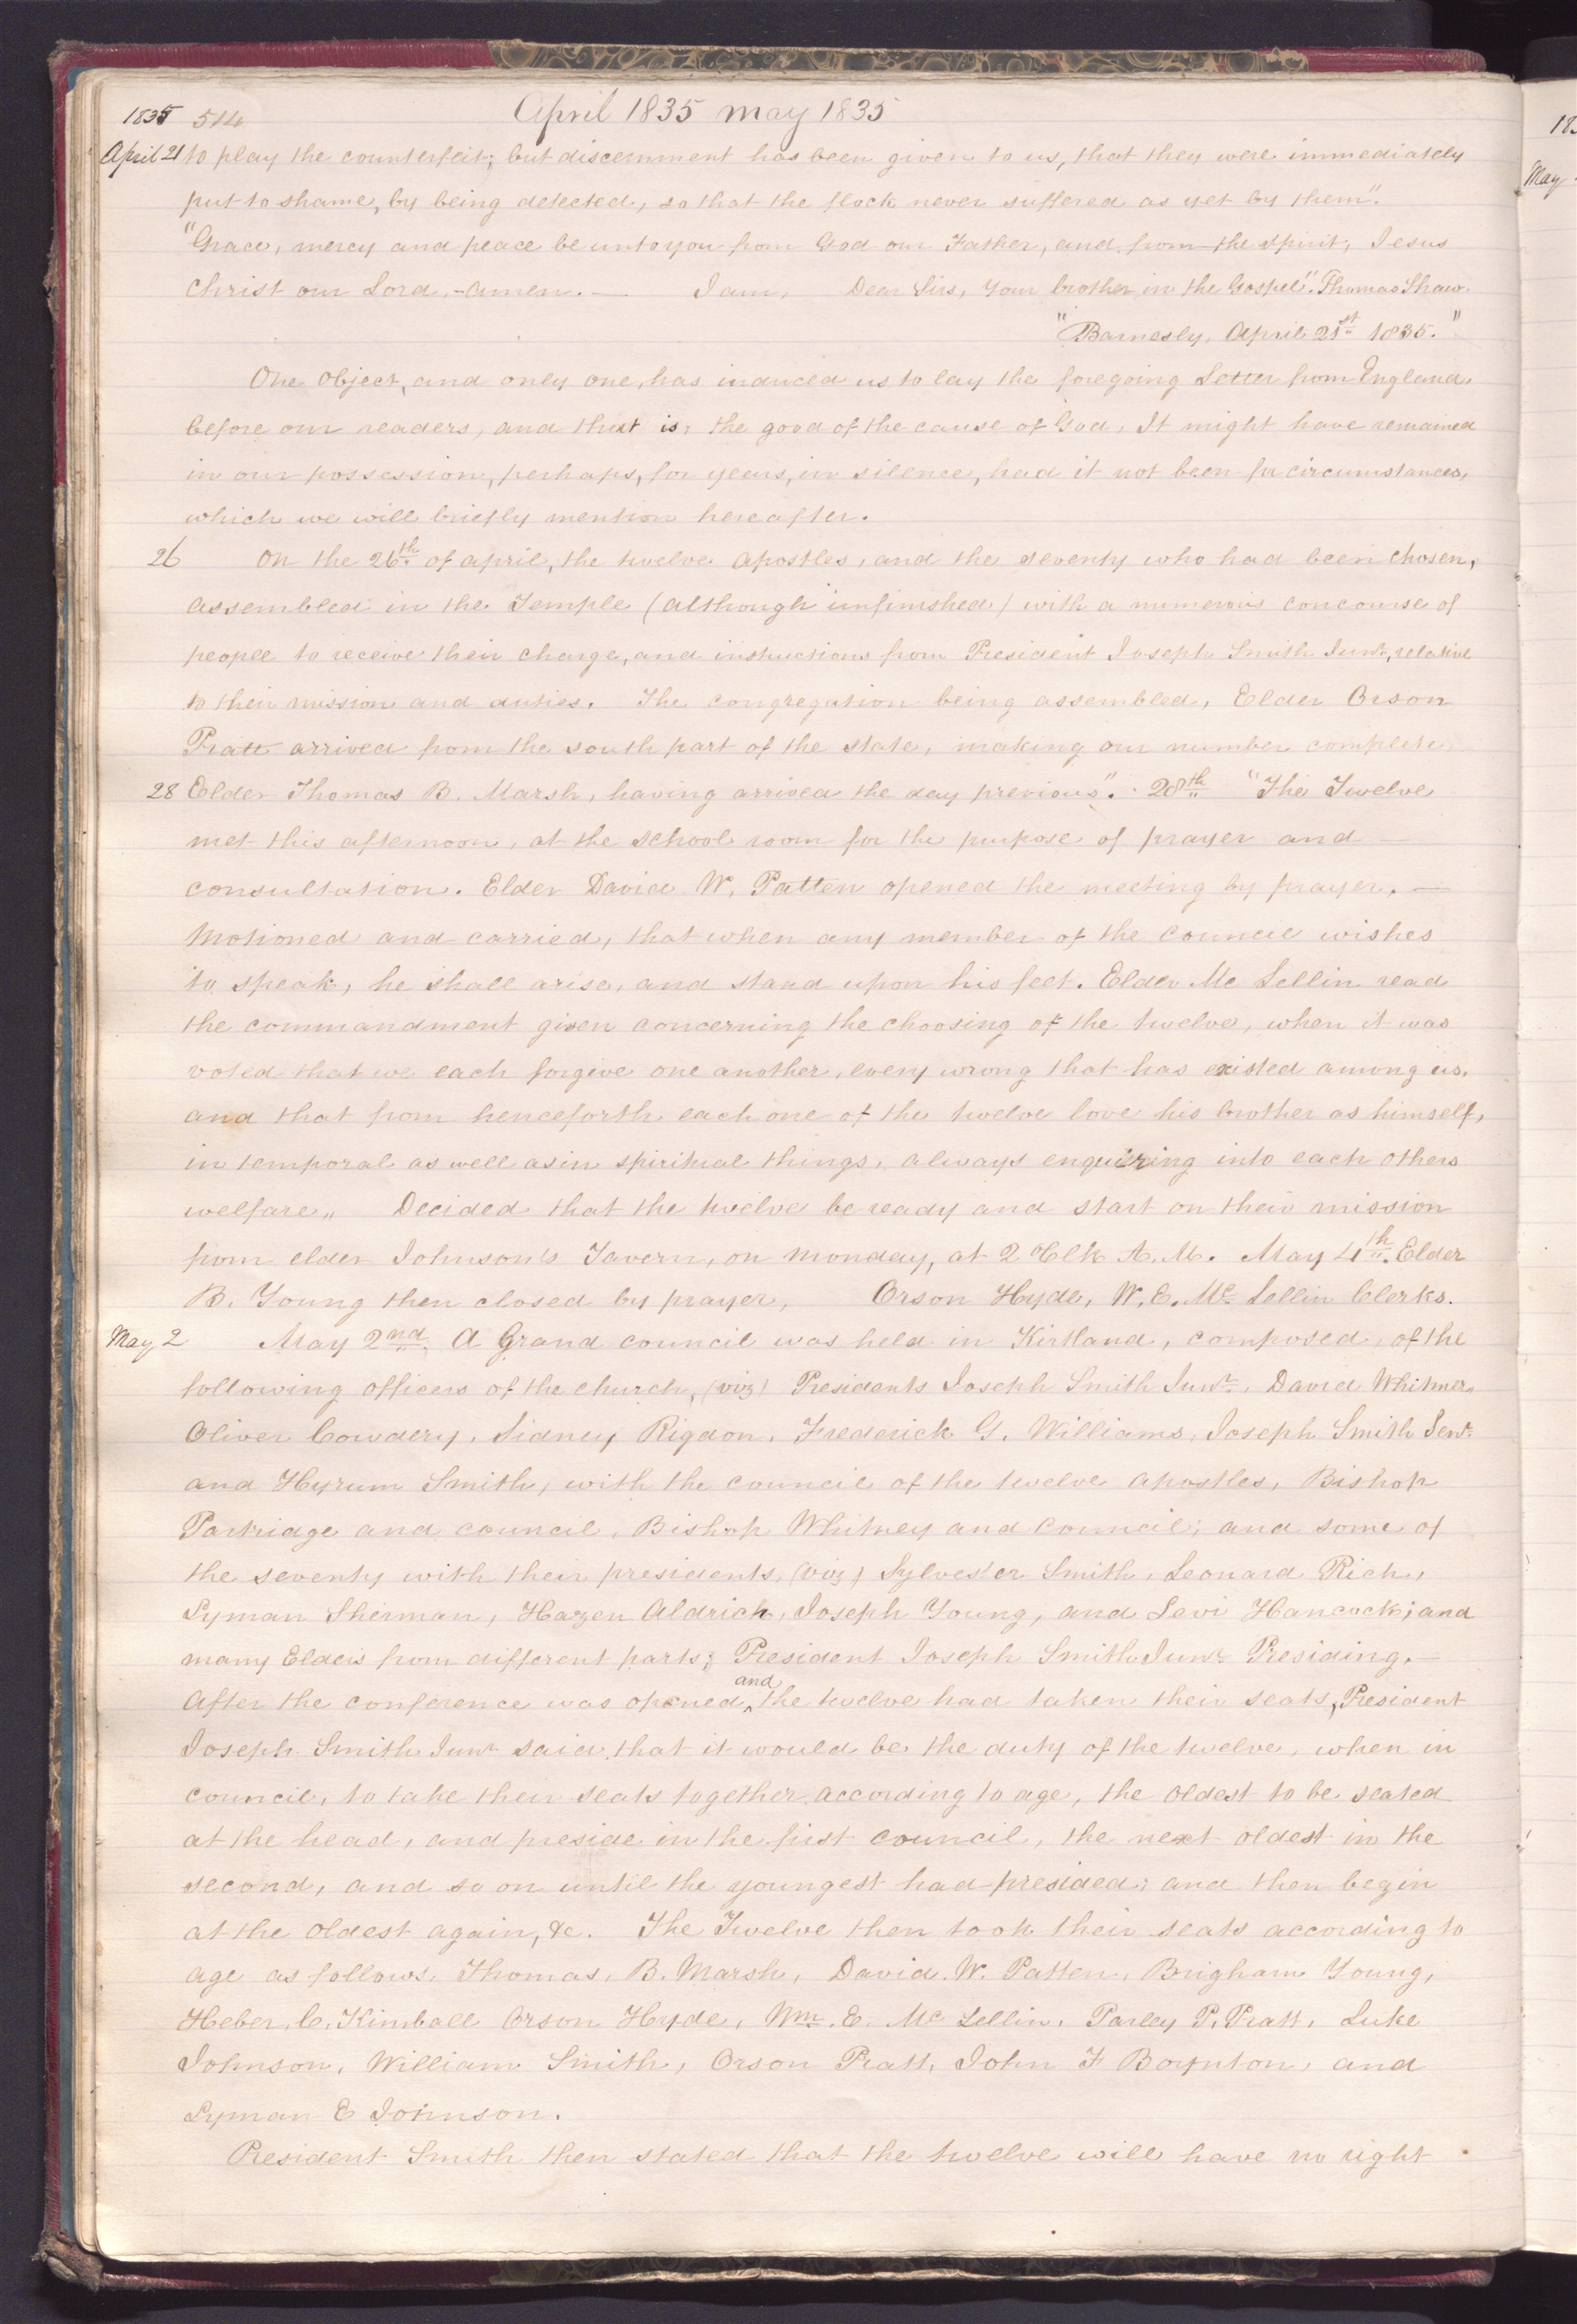 1835 514 April 1835 may 1835
April 21 to play the counterfeit; but discernment has been given to us, that they were immediately
put to shame, by being detected, so that the flock never suffered as yet by them".
"Grace, mercy and peace be unto you from God our Father, and from the spirit, Jesus
Christ our Lord,- amen.— I am, Dear Sirs, your brother in the Gospel". Thomas Shaw.
"Barnesly, April 21st 1835."
One object, and only one, has induced us to lay the foregoing Letter from England
before our readers, and that is, the good of the cause of God, It might have remained
in our possession, perhaps, for years, in silence, had it not been for circumstances,
which we will briefly mention hereafter.
26 On the 26th of april, the twelve Apostles, and the seventy who had been chosen,
assembled in the Temple (although unfinished) with a numerous concourse of
people to receive their charge, and instructions from President Joseph Smith Junr, relative
to their mission and duties. The congregation being assembled, Elder Orson
Pratt arrived from the south part of the state, making our number complete
28 Elder Thomas B. Marsh, having arrived the day previous". 28th "The Twelve
met this afternoon, at the school room for the purpose of prayer and —
consultation. Elder David W. Patten opened the meeting by prayer. —
Motioned and carried, that when any member of the council wishes
to speak, he shall arise, and stand upon his feet. Elder Mc Lellin read
the commandment given concerning the choosing of the twelve, when it was
voted that we each forgive one another, every wrong that has existed among us,
and that from henceforth each one of the twelve love his brother as himself,
in temporal as well as in spiritual things, always enquiring into each others
welfare„ Decided that the twelve be ready and start on their mission
from elder Johnson's Tavern, on Monday, at 2 oClk A.M. May 4th. Elder
B. Young then closed by prayer, Orson Hyde, W. E. Mc Lellin Clerks.
May 2 May 2nd, A Grand council was held in Kirtland, composed, of the
following officers of the church, (viz) Presidents Joseph Smith Junr, David Whitmer,
Oliver Cowdery, Sidney Rigdon, Frederick G. Williams, Joseph Smith Senr
and Hyrum Smith, with the council of the twelve apostles, Bishop
Partridge and council, Bishop Whitney and Council; and some of
the seventy with their presidents, (viz) Sylvester Smith, Leonard Rich,
Lyman Sherman, Hazen Aldrich, Joseph Young, and Levi Hancock; and
many Elders from different parts; President Joseph Smith Junr Presiding.—
and
After the conference was opened, ^ the twelve had taken their seats, President
Joseph Smith Junr said, that it would be the duty of the twelve, when in
council, to take their seats together according to age, the oldest to be seated
at the head, and preside in the first council, the next oldest in the
second, and so on until the youngest had presided; and then begin
at the oldest again, &c. The Twelve then took their seats according to
age as follows, Thomas, B. Marsh, David. W. Patten, Brigham Young,
Heber, C. Kimball Orson Hyde, Wm. E. Mc Lellin, Parley P. Pratt, Luke
Johnson, William Smith, Orson Pratt, John F Boynton, and
Lyman E Johnson.
President Smith then stated that the twelve will have no right
183
May